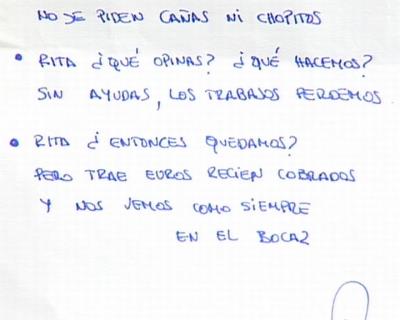 NO SE PIDEN CAÑAS NI CHOPITOS
• RITA ¿QUÉ OPINAS? ¿QUÉ HACEMOS?
SIN AYUDAS, LOS TRABAJOS PERDEMOS.
• RITA ¿ENTONCES QUEDAMOS?
PERO TRAE EUROS RECIEN COBRADOS
Y NOS VEMOS COMO SIEMPRE
EN EL BOCA2